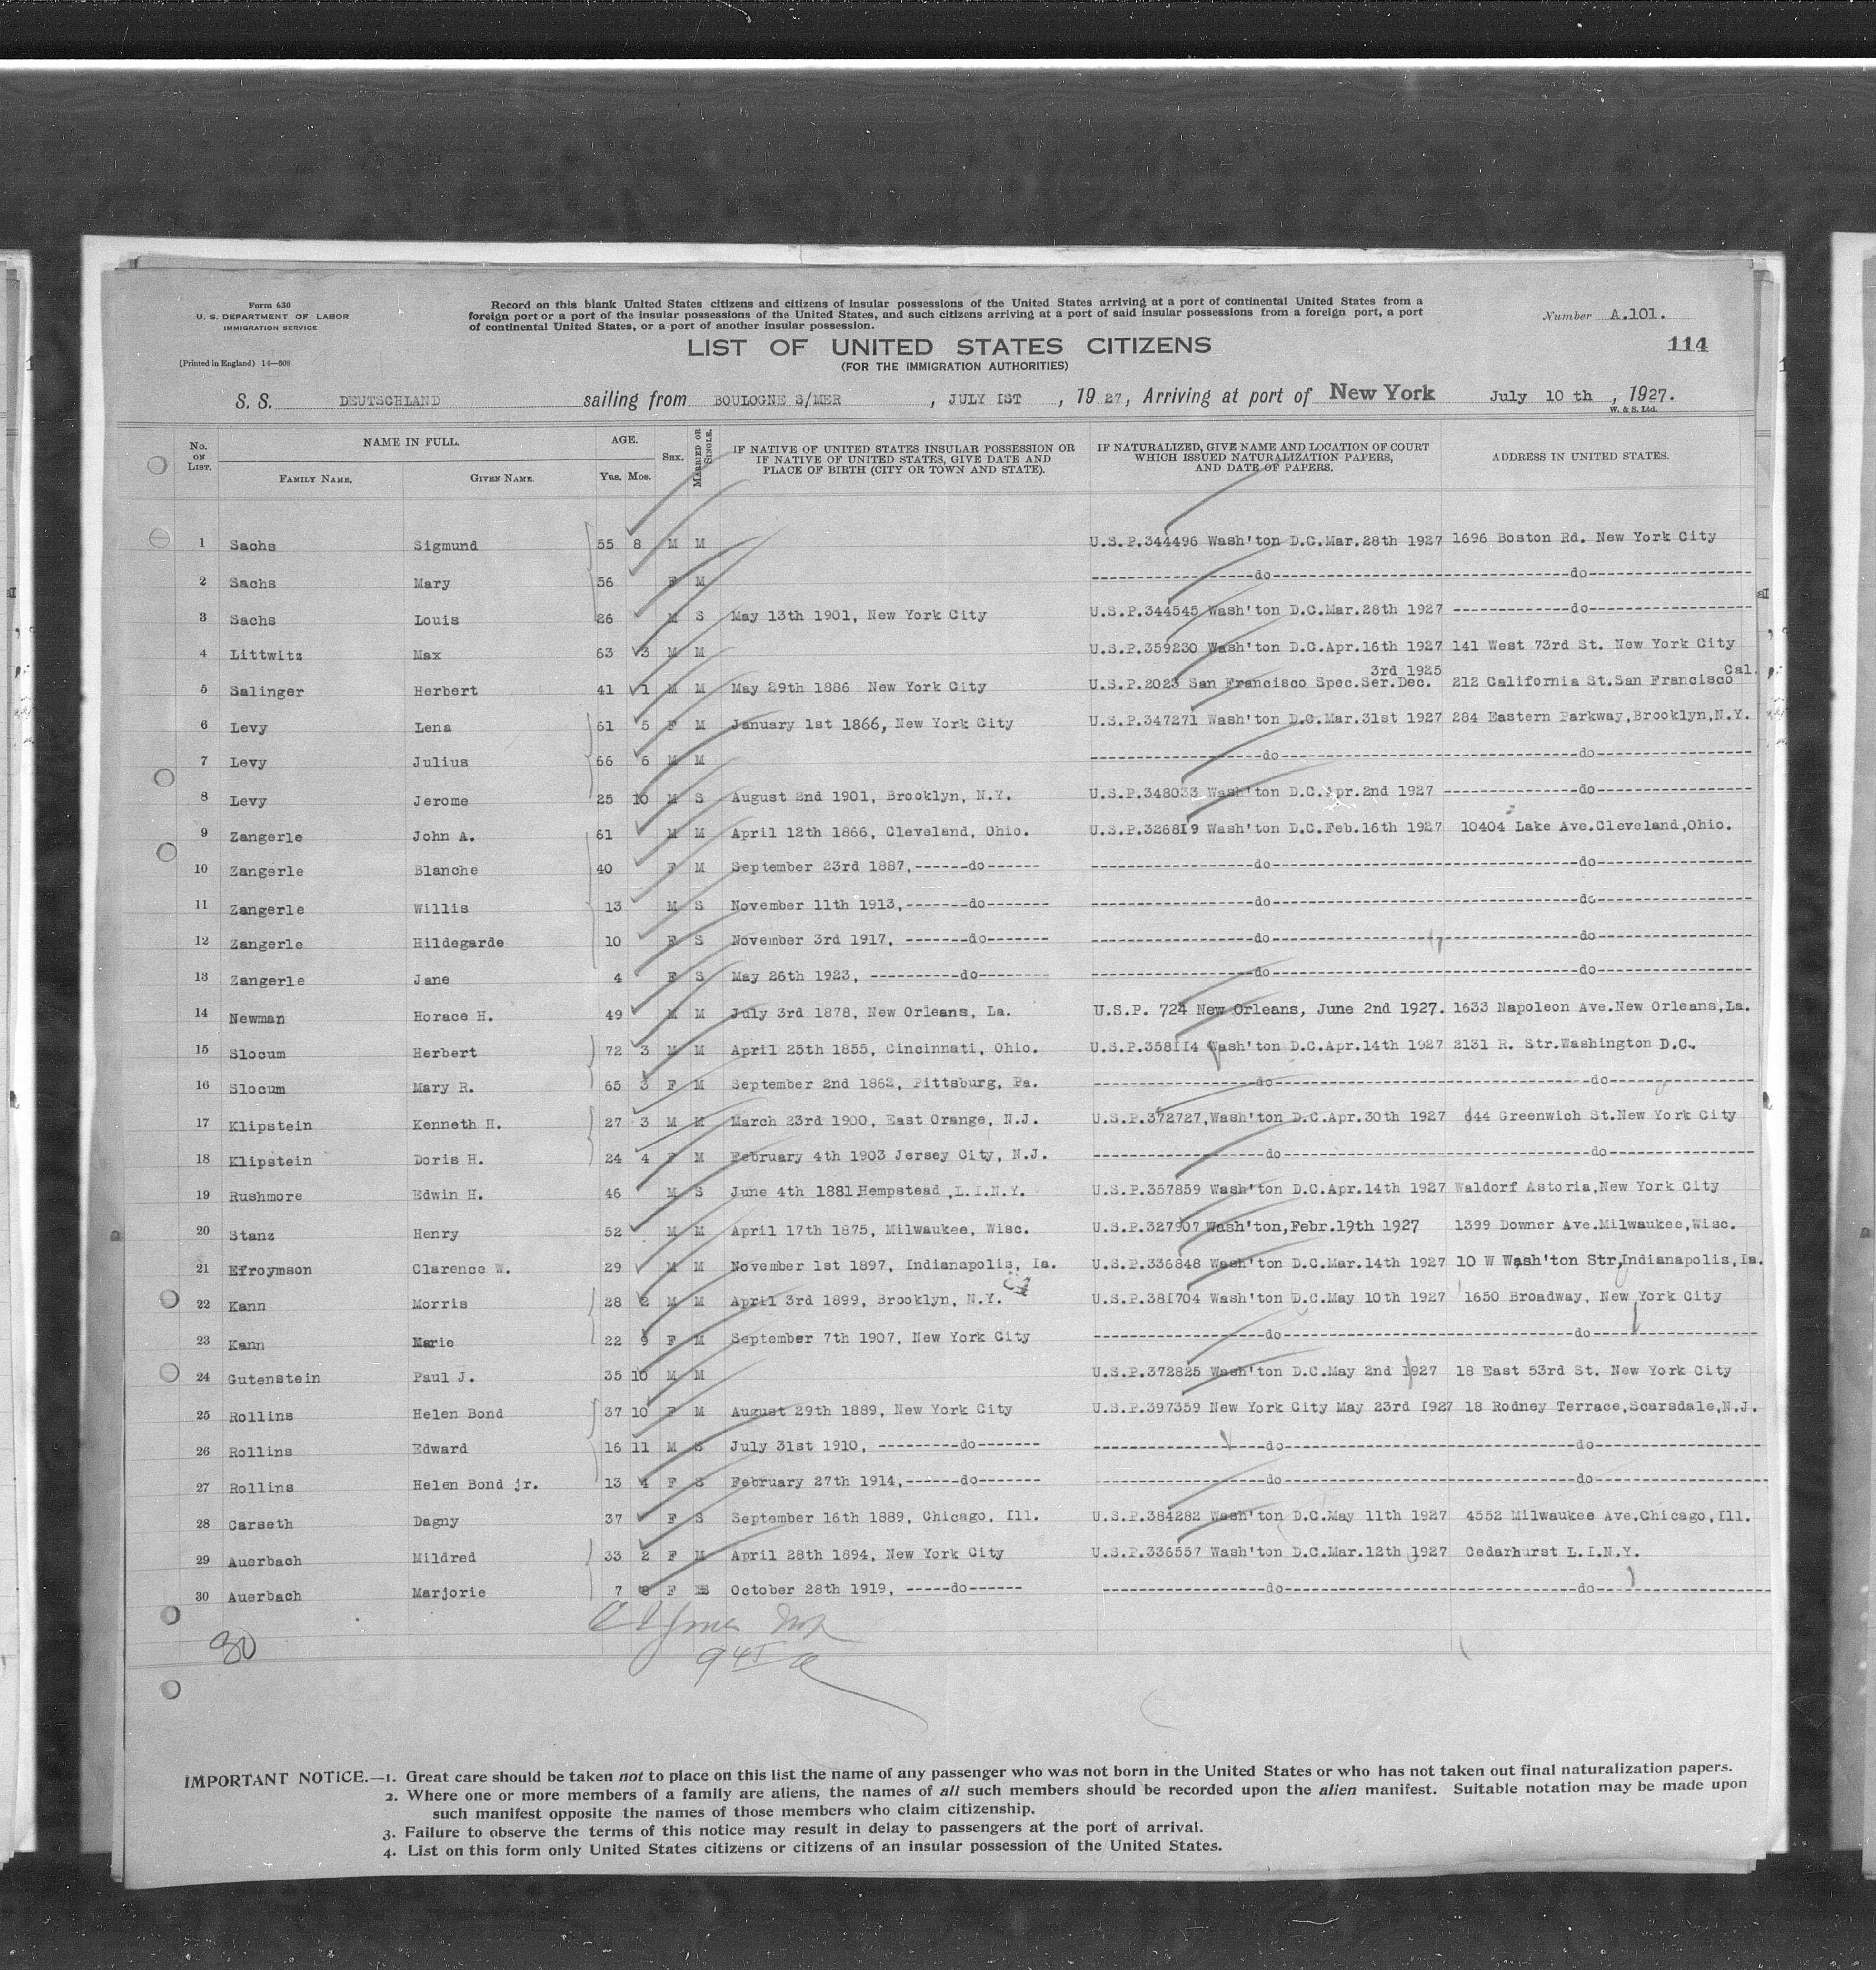 Form 630
U. S. DEPARTMENT OF LABOR
IMMIGRATION SERVICE
(Printed in England) 14—608
Record on this blank United States citizens and citizens of insular possessions of the United States arriving at a port of continental United States from a
foreign port or a port of the insular possessions of the United States, and such citizens arriving at a port of said insular possessions from a foreign port, a port
of continental United States, or a port of another insular possession.
Number A.101.
114
LIST OF UNITED STATES CITIZENS
(FOR THE IMMIGRATION AUTHORITIES)
S. S. DEUTSCHLAND sailing from BOULOGNE S/MER, JULY 1ST, 1927, Arriving at port of New York July 10 th, 1927.
W. & S. Ltd.
No. ON LIST. NAME IN FULL. FAMILY NAME. GIVEN NAME. AGE. YRS. MOS. SEX. MARRIED OR SINGLE. IF NATIVE OF UNITED STATES INSULAR POSSESSION OR IF NATIVE OF UNITED STATES, GIVE DATE AND PLACE OF BIRTH (CITY OR TOWN AND STATE). IF NATURALIZED, GIVE NAME AND LOCATION OF COURT WHICH ISSUED NATURALIZATION PAPERS, AND DATE OF PAPERS. ADDRESS IN UNITED STATES.
1 Sachs Sigmund 55 8 M M U.S.P.344496 Wash'ton D.C.Mar.28th 1927 1696 Boston Rd. New York City
2 Sachs Mary 56 F M ---do--- ---do---
3 Sachs Louis 26 M S May 13th 1901, New York City U.S.P.344545 Wash'ton D.C.Mar.28th 1927 ---do---
4 Littwitz Max 63 3 M M U.S.P.359230 Wash'ton D.C.Apr.16th 1927 141 West 73rd St. New York City
3rd 1925 Cal.
5 Salinger Herbert 41 1 M M May 29th 1886 New York City U.S.P.2023 San Francisco Spec.Ser.Dec. 212 California St.San Francisco
6 Levy Lena 61 5 F M January 1st 1866, New York City U.S.P.347271 Wash'ton D.C.Mar.31st 1927 284 Eastern Parkway,Brooklyn,N.Y.
7 Levy Julius 66 6 M M ---do--- ---do---
8 Levy Jerome 25 10 M S August 2nd 1901, Brooklyn, N.Y. U.S.P.348033 Wash'ton D.C.Apr.2nd 1927 ---do---
9 Zangerle John A. 61 M M April 12th 1866, Cleveland, Ohio. U.S.P.326819 Wash'ton D.C.Feb.16th 1927 10404 Lake Ave.Cleveland,Ohio.
10 Zangerle Blanche 40 F M September 23rd 1887,---do--- ---do--- ---do---
11 Zangerle Willis 13 M S November 11th 1913,---do--- ---do--- ---do---
12 Zangerle Hildegarde 10 F S November 3rd 1917, ---do--- ---do--- ---do---
13 Zangerle Jane 4 F S May 26th 1923, ---do--- ---do--- ---do---
14 Newman Horace H. 49 M M July 3rd 1878, New Orleans, La. U.S.P. 724 New Orleans, June 2nd 1927. 1633 Napoleon Ave.New Orleans,La.
15 Slocum Herbert 72 3 M M April 25th 1855, Cincinnati, Ohio. U.S.P.358114 Wash'ton D.C.Apr.14th 1927 2131 R. Str.Washington D.C.
16 Slocum Mary R. 65 3 F M September 2nd 1862, Pittsburg, Pa. ---do--- ---do---
17 Klipstein Kenneth H. 27 3 M M March 23rd 1900, East Orange, N.J. U.S.P.372727,Wash'ton D.C.Apr.30th 1927 644 Greenwich St.New York City
18 Klipstein Doris H. 24 4 F M February 4th 1903 Jersey City, N.J. ---do--- ---do---
19 Rushmore Edwin H. 46 M S June 4th 1881 Hempstead ,L.I.N.Y. U.S.P.357859 Wash'ton D.C.Apr.14th 1927 Waldorf Astoria,New York City
20 Stanz Henry 52 M M April 17th 1875, Milwaukee, Wisc. U.S.P.327907 Wash'ton,Febr.19th 1927 1399 Downer Ave.Milwaukee,Wisc.
21 Efroymson Clarence W. 29 M M November 1st 1897, Indianapolis, Ia. U.S.P.336848 Wash'ton D.C.Mar.14th 1927 10 W Wash'ton Str,Indianapolis,Ia.
22 Kann Morris 28 2 M M April 3rd 1899, Brooklyn, N.Y. U.S.P.381704 Wash'ton D.C.May 10th 1927 1650 Broadway, New York City
23 Kann Marie 22 9 F M September 7th 1907, New York City ---do--- ---do---
24 Gutenstein Paul J. 35 10 M M U.S.P.372825 Wash'ton D.C.May 2nd 1927 18 East 53rd St. New York City
25 Rollins Helen Bond 37 10 F M August 29th 1889, New York City U.S.P.397359 New York City May 23rd 1927 18 Rodney Terrace,Scarsdale,N.J.
26 Rollins Edward 16 11 M S July 31st 1910, ---do--- ---do--- ---do---
27 Rollins Helen Bond jr. 13 4 F S February 27th 1914,---do--- ---do--- ---do---
28 Carseth Dagny 37 F S September 16th 1889, Chicago, Ill. U.S.P.384282 Wash'ton D.C.May 11th 1927 4552 Milwaukee Ave.Chicago,Ill.
29 Auerbach Mildred 33 2 F M April 28th 1894, New York City U.S.P.336557 Wash'ton D.C.Mar.12th 1927 Cedarhurst L.I.N.Y.
30 Auerbach Marjorie 7 8 F S October 28th 1919, ---do--- ---do--- ---do---
30
IMPORTANT NOTICE.—1. Great care should be taken not to place on this list the name of any passenger who was not born in the United States or who has not taken out final naturalization papers.
2. Where one or more members of a family are aliens, the names of all such members should be recorded upon the alien manifest. Suitable notation may be made upon
such manifest opposite the names of those members who claim citizenship.
3. Failure to observe the terms of this notice may result in delay to passengers at the port of arrival.
4. List on this form only United States citizens or citizens of an insular possession of the United States.